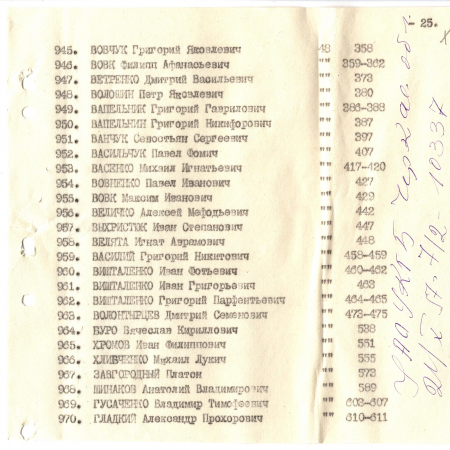 - 25.
945. ВОВЧУК Григорий Яковлевич 48 358
946. ВОВК Филипп Афанасьевич "" 359-362
947. ВЕТРЕНКО Дмитрий Васильевич "" 373
948. ВОЛОНИН Петр Яковлевич "" 380
949. ВАПЕЛЬНИК Григорий Гаврилович "" 386-388
950. ВАПЕЛЬНИН Григорий Никифорович "" 387
951. ВАНЧУК Севостьян Сергеевич "" 397
952. ВАСИЛЬЧУК Павел Фомич "" 407
953. ВАСЕНКО Михаил Игнатьевич "" 417-420
954. ВОВНЕНКО Павел Иванович "" 427
955. ВОВК Максим Иванович "" 429
956. ВЕЛИЧКО Алексей Мефодьевич "" 442
957. ВЫХРИСТЮК Иван Степанович "" 447
958. ВЕЛЯТА Игнат Аврамович "" 448
959. ВАСИЛИЙ Григорий Никитович "" 458-459
960. ВИШТАЛЕНКО Иван Фотьевич "" 460-462
961. ВИШТАЛЕНКО Иван Григорьевич "" 463
962. ВИШТАЛЕНКО Григорий Парфентьевич "" 464-465
963. ВОЛОНТЫРЦЕВ Дмитрий Семенович "" 473-475
964. БУРО Вячеслав Кириллович "" 538
965. ХРОМОВ Иван Филиппович "" 551
966. ХЛИВЧЕНКО Михаил Лукич "" 555
967. ЗАВГОРОДНЫЙ Платон "" 573
968. ШИНАКОВ Анатолий Владимирович "" 589
969. ГУСАЧЕНКО Владимир Тимофеевич "" 603-607
970. ГЛАДКИЙ Александр Прохорович "" 610-611
10337